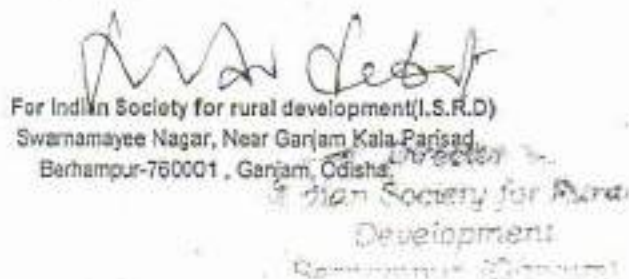 For Indian Society for rural development(I.S.R.D)
Swarnamayee Nagar, Near Ganjam Kala Parisad
Berhampur-760001 , Ganjam, Odisha.
Director
Indian Society for Rural
Development